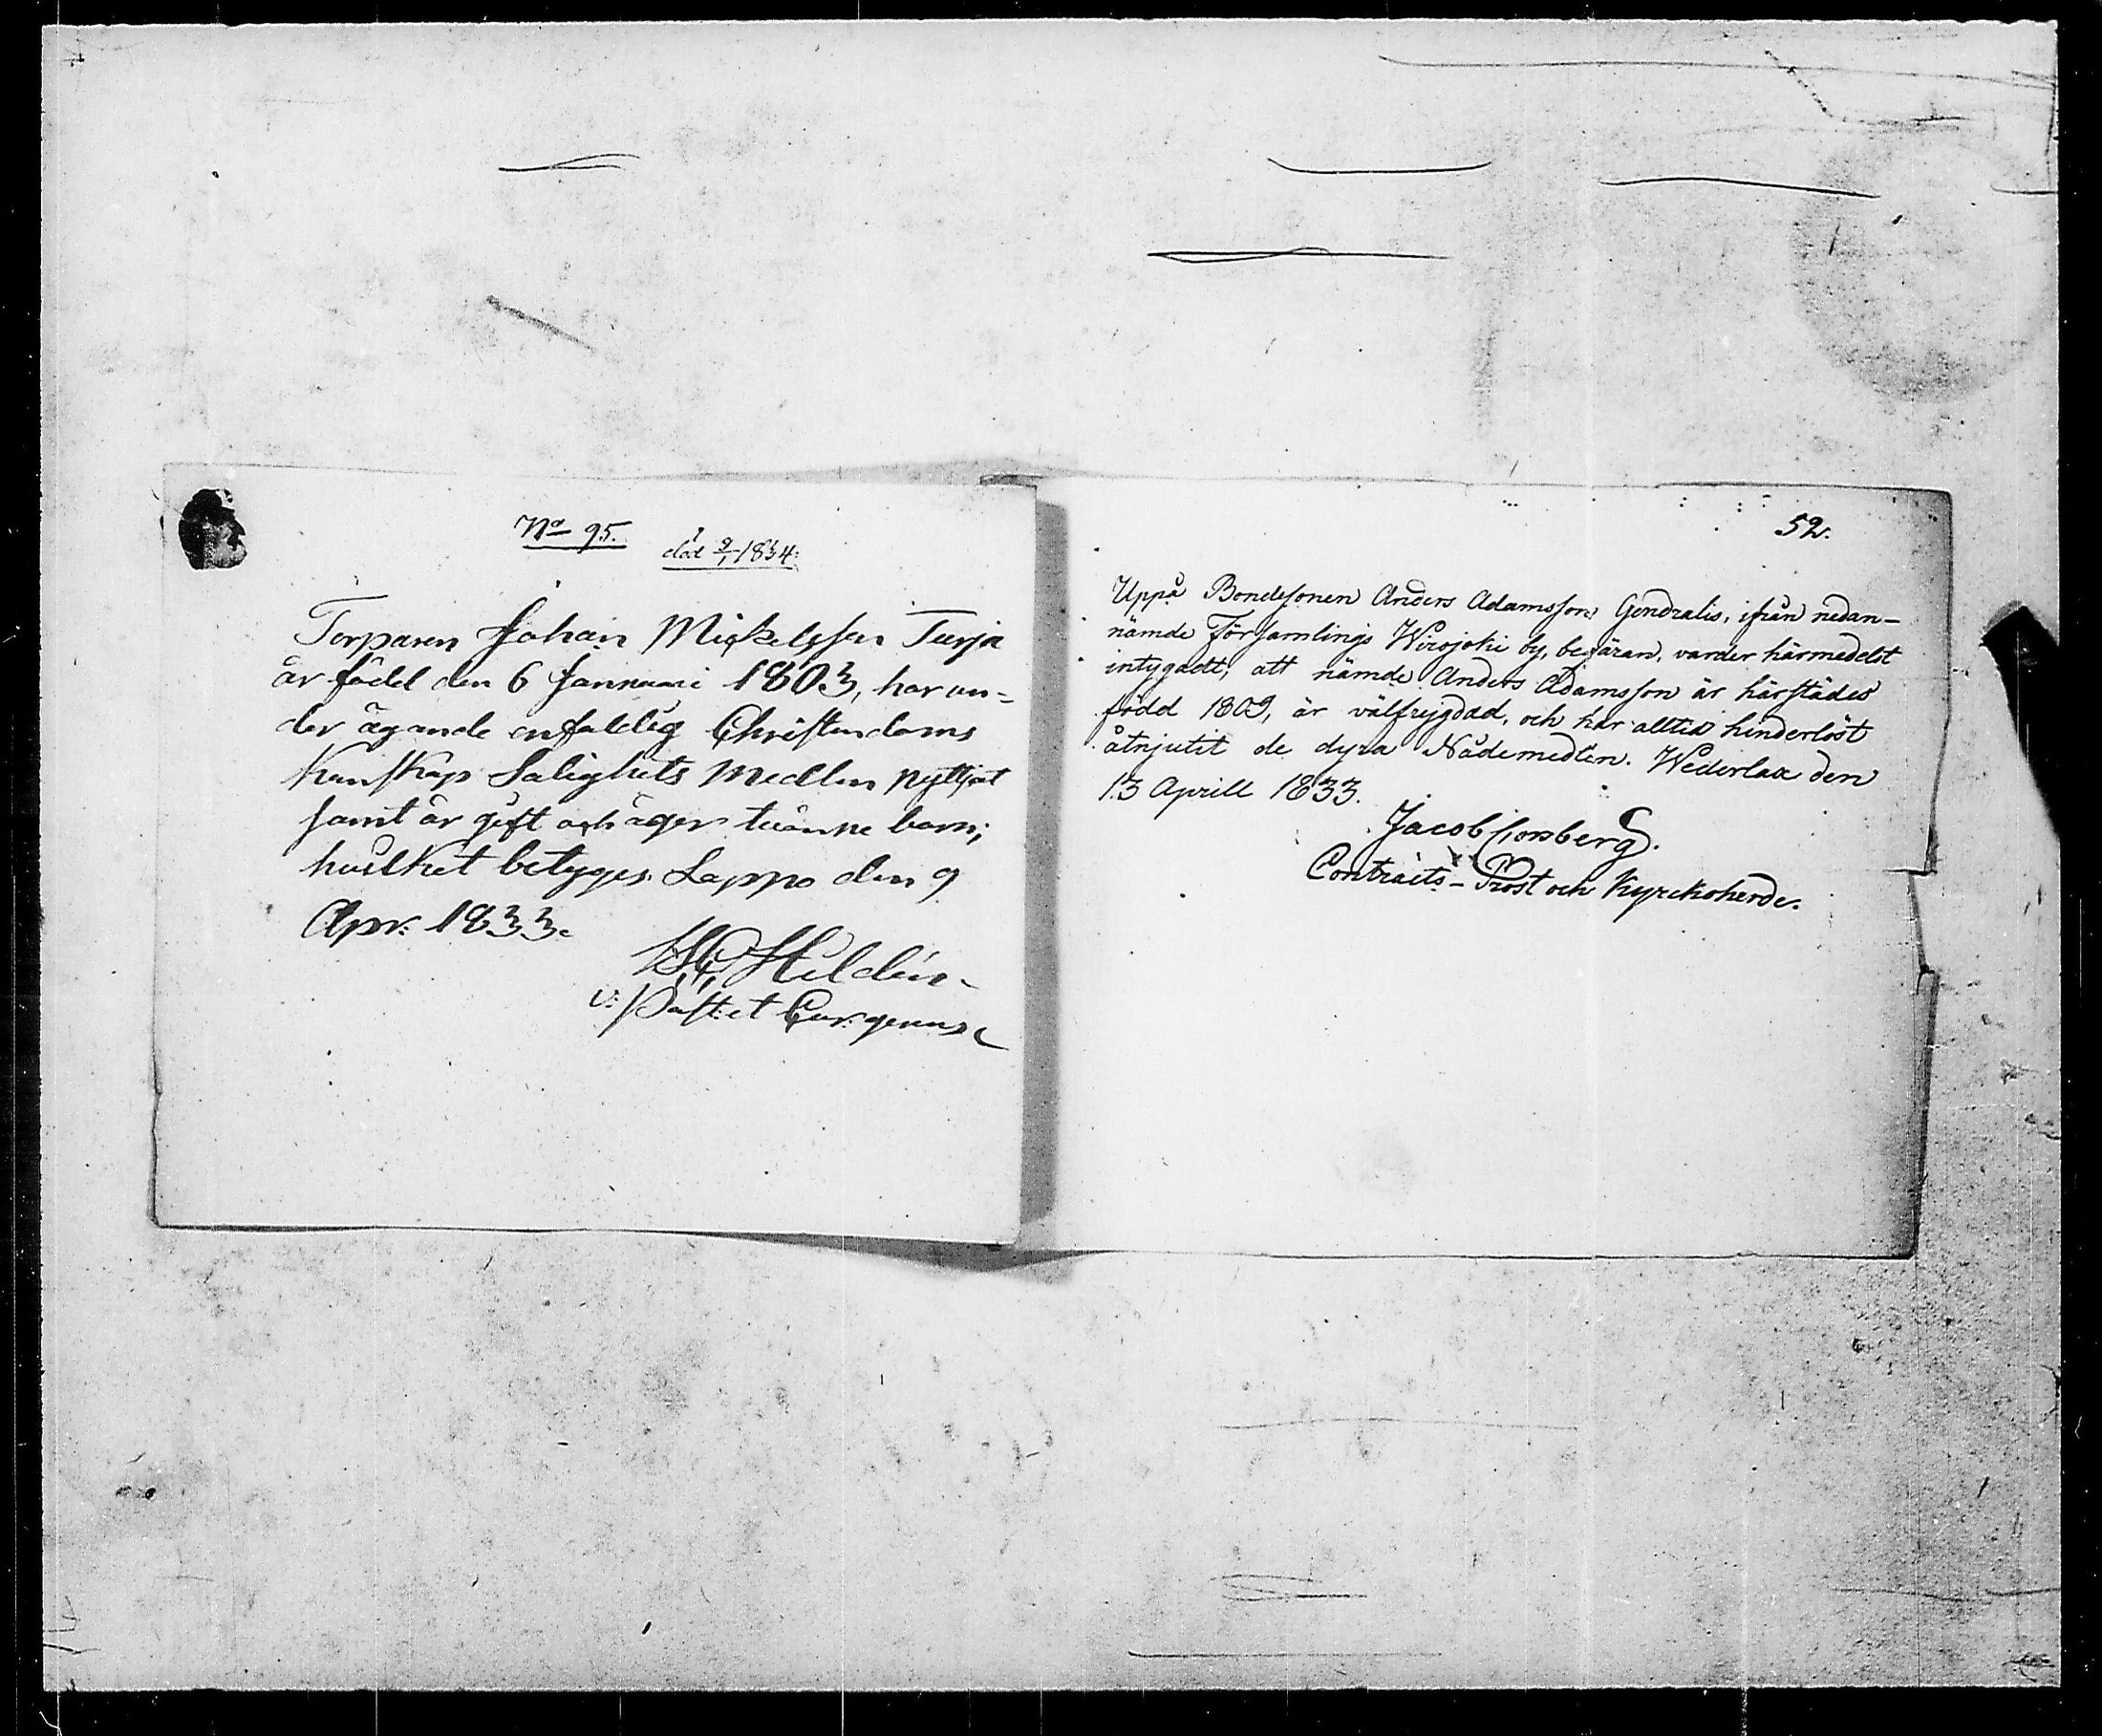 No 95.
död 9/1 1834:
Torparen Johan Mickelsson Turja
är född den 6 Januari 1803, har un-
der ägande enfaldig Christendoms
Kunskap Salighets Medlen nyttjat
samt är gift och äger tvänne barn;
hvilket betygas. Lappo den 9
Apr. 1833.
Hildén
v: Past: et Cur: gener:
52.
Uppå Bondesonen Anders Adamsson Gendralis, ifrån nedan-
nämde Församlings Wirojoki by, begäran, varder härmedelst
intygadt, att nämde Anders Adamsson är härstädes
född 1809, är välfrejgdad, och har alltid hinderlöst
åtnjutit de dyra Nådemedlen. Wederlax den
13 Aprill 1833.
Jacob Cronberg.
Contracts-Prost och Kyrckoherde.